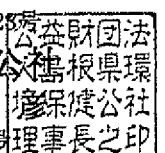 号
公益財団法
人島根県環
境保健公社
理事長之印